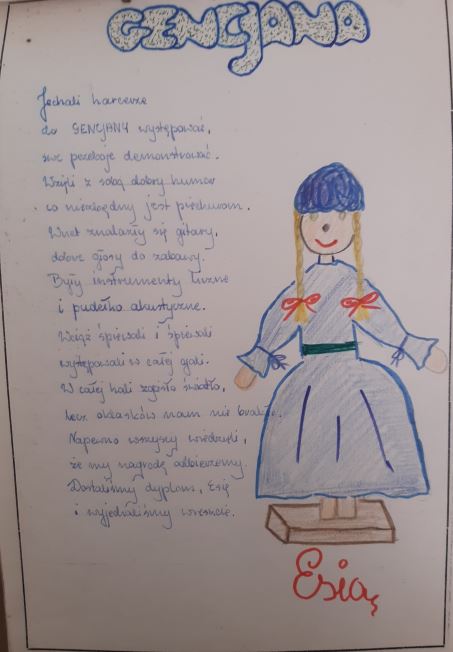 GENCJANA
Jechali harcerze
do GENCJANY występować,
swe przeboje demonstrować.
Wzięli z sobą dobry humor
co niezbędny jest piechurom.
Wnet znalazły się gitary,
dobre głosy do zabawy.
Były instrumenty liczne
i pudełko akustyczne.
Wciąż śpiewali i śpiewali
występowali w całej gali.
W całej hali zgasło światło,
lecz oklasków nam nie brakło.
Napewno wszyscy wiedzieli,
że my nagrodę odbierzemy.
Dostaliśmy dyplom, Esię
i wyjechaliśmy wreszcie.
Esia